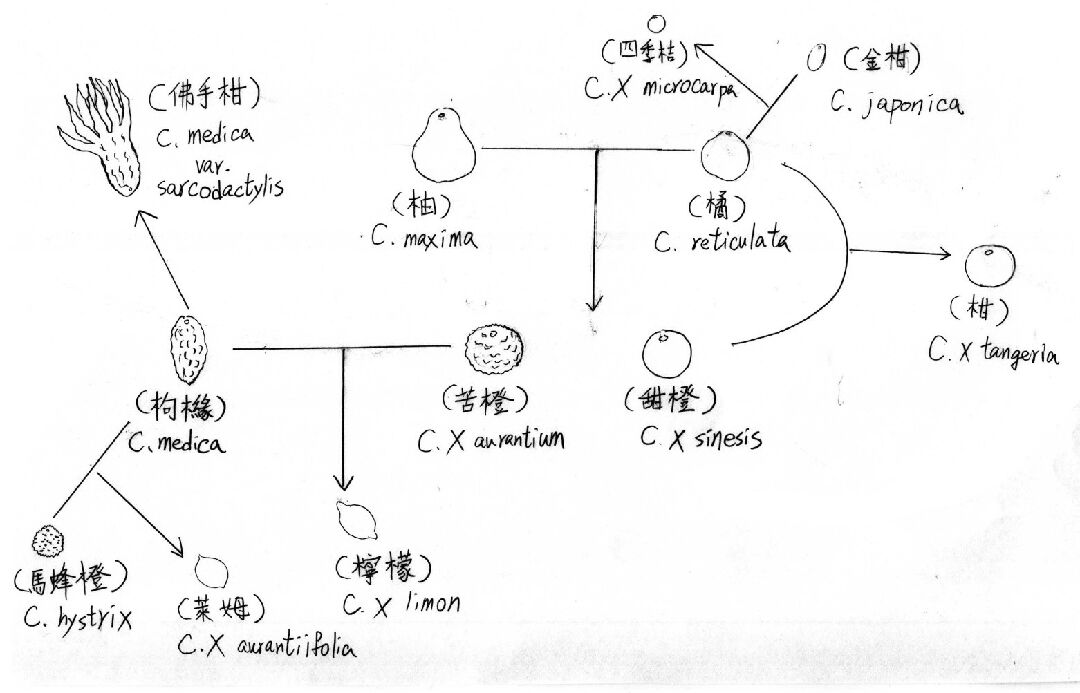 (四季桔)
C. X microcarpa
(金柑)
C. japonica
(佛手柑)
C. medica
var.
sarcodactylis
(柚)
C. maxima
(橘)
C. reticulata
(柑)
C. X tangeria
(枸櫞)
C. medica
(苦橙)
C. X aurantium
(甜橙)
C. X sinesis
(馬蜂橙)
C. hystrix
(萊姆)
C. X aurantiifolia
(檸檬)
C. X limon